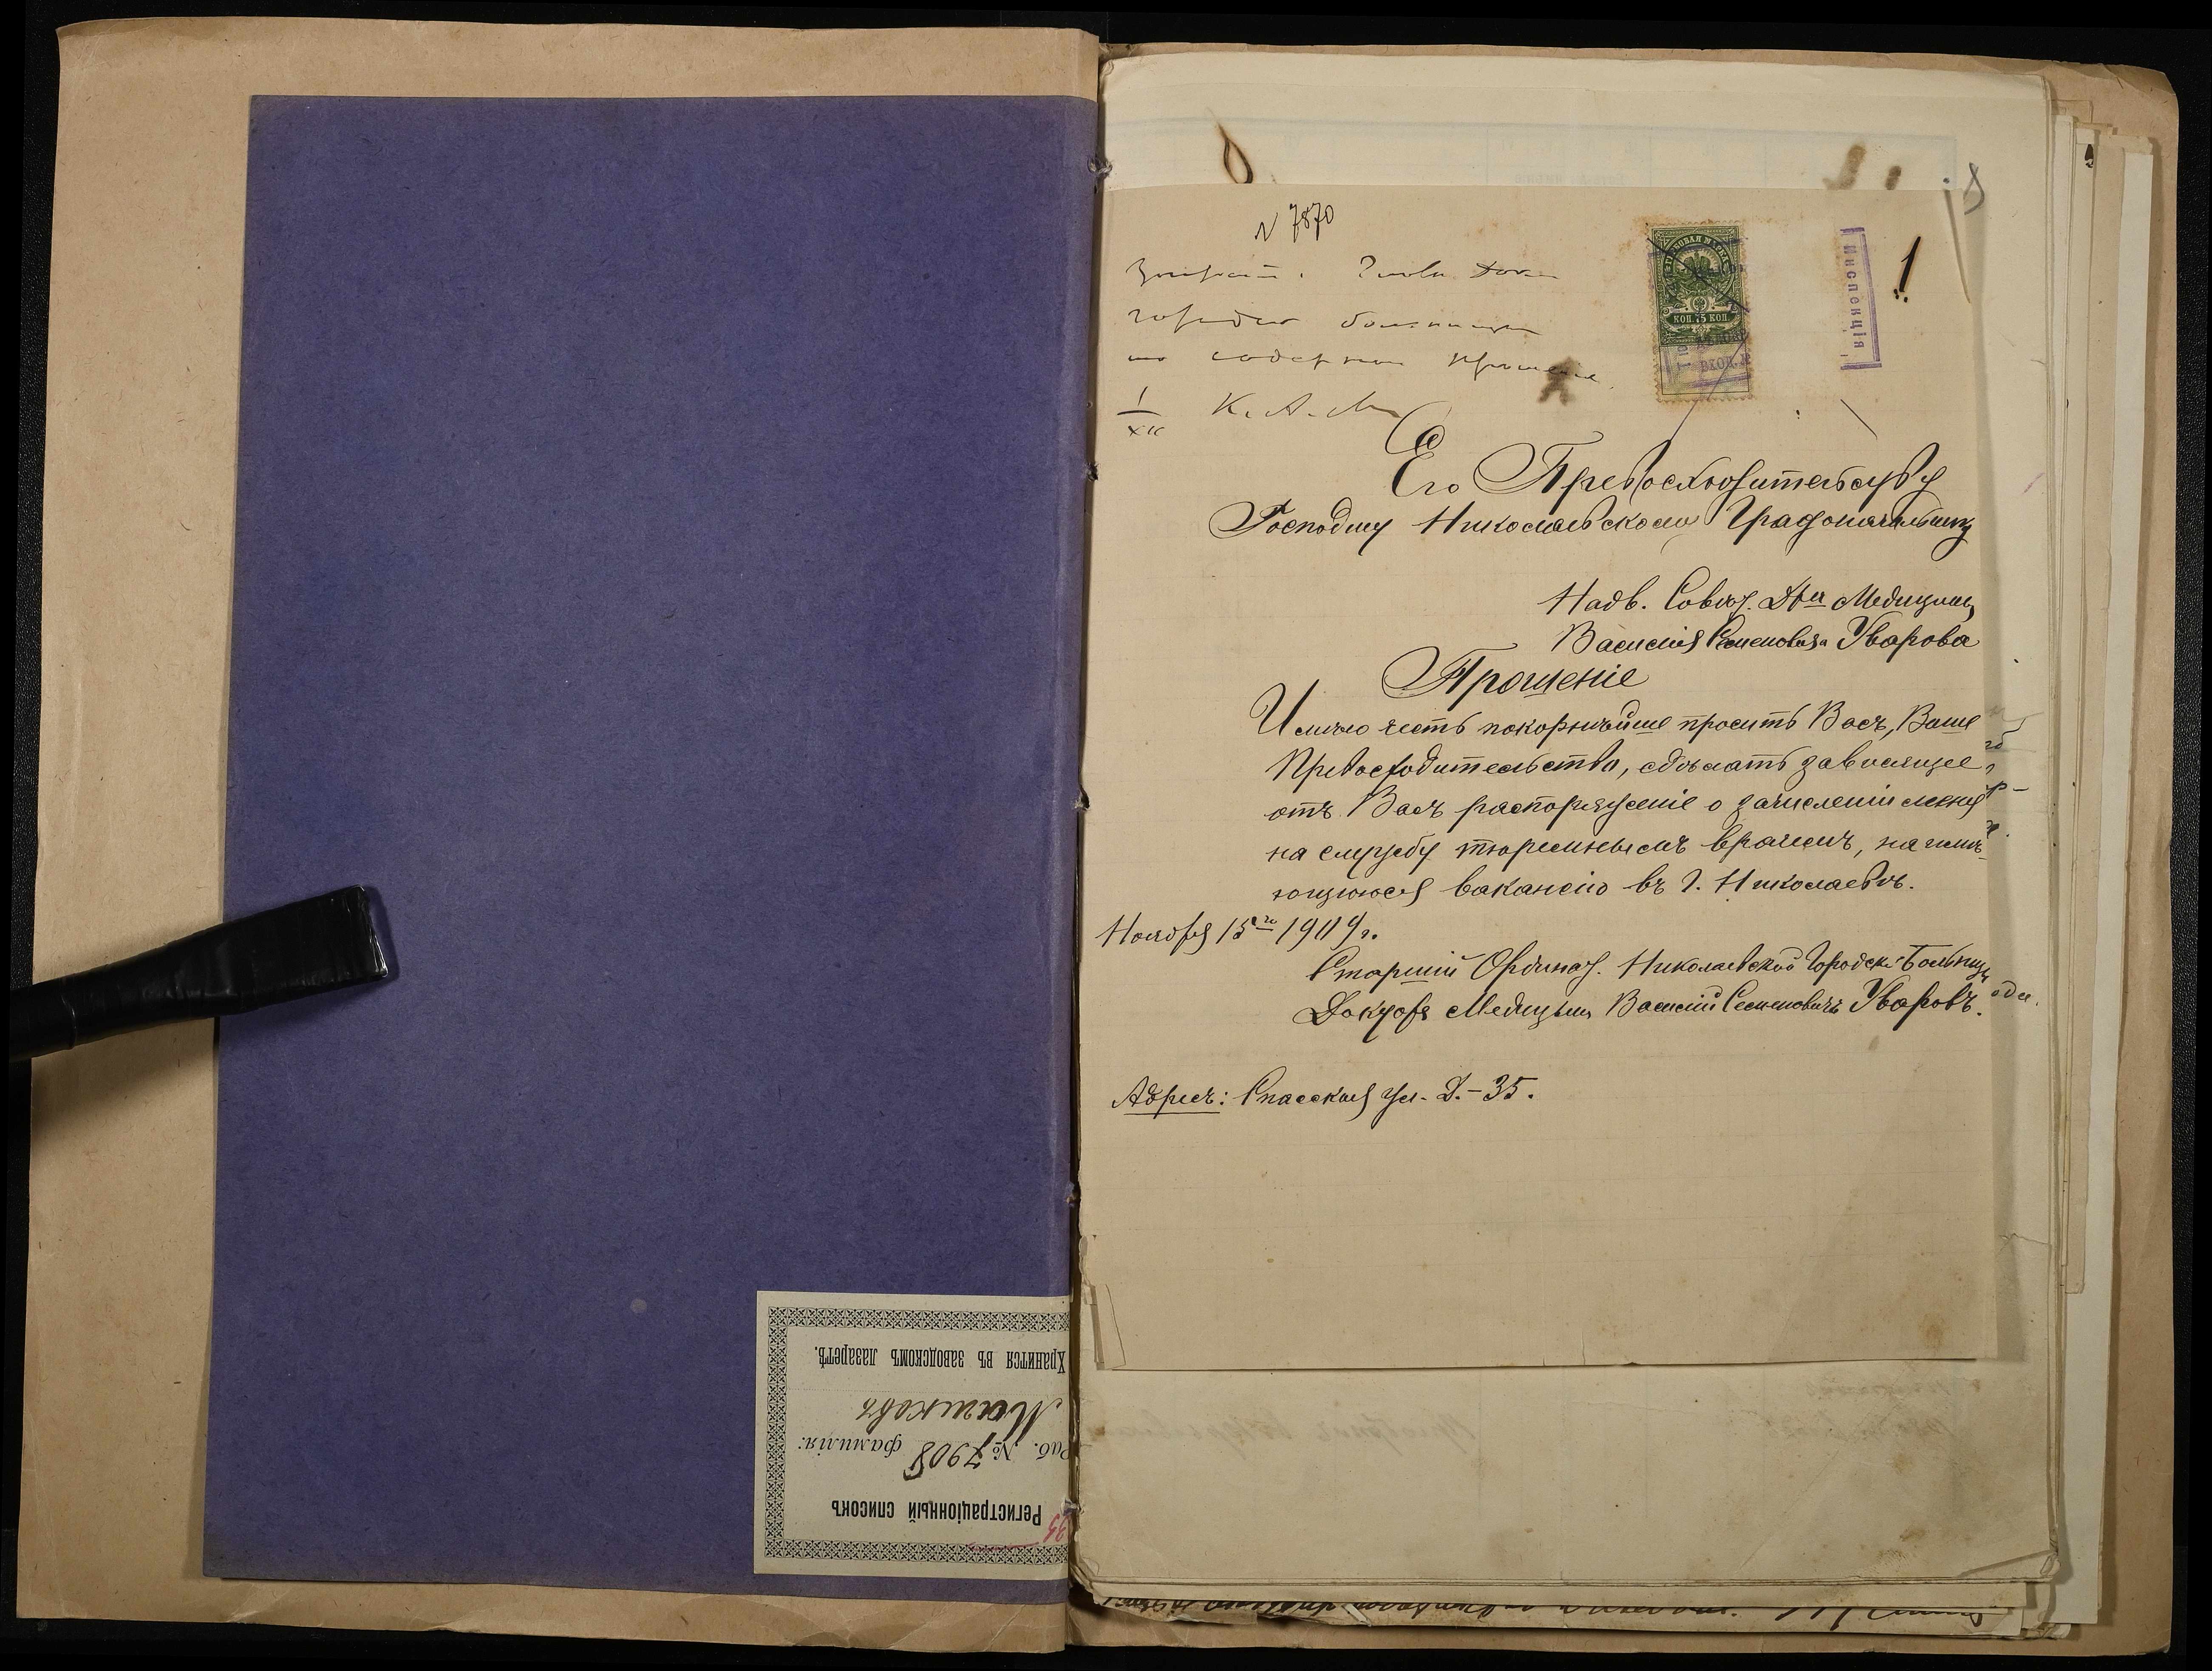 № 7870
1
Инспекція
КОП. 75 КОП.
ВХОД. №
городск больницы
по содержан прошенія.
1/XII
Его Превосходительству
Господину Николаевскому Градоначальнику
Надв. Совѣт. Д-ра Медицины
Василія Семеновича Уварова
Прошеніе
Имѣю честь покорнѣйше просить Васъ, Ваше
Превосходительство, сдѣлать зависящее
отъ Васъ распоряженіе о зачисленіи меня
на службу тюремнымъ врачемъ, на имѣ-
ющуюся вакансію въ г. Николаевѣ.
Ноября 15го 1909 г.
Старшій Ординат. Николаевской Городск. Больницы
Докторъ Медицины Василій Семеновичъ Уваровъ.
Адресъ: Спасская ул. Д.-35.
Регистраціонный списокъ
Раб. № 7908 фамилія:
Хранится въ заводскомъ лазаретѣ.